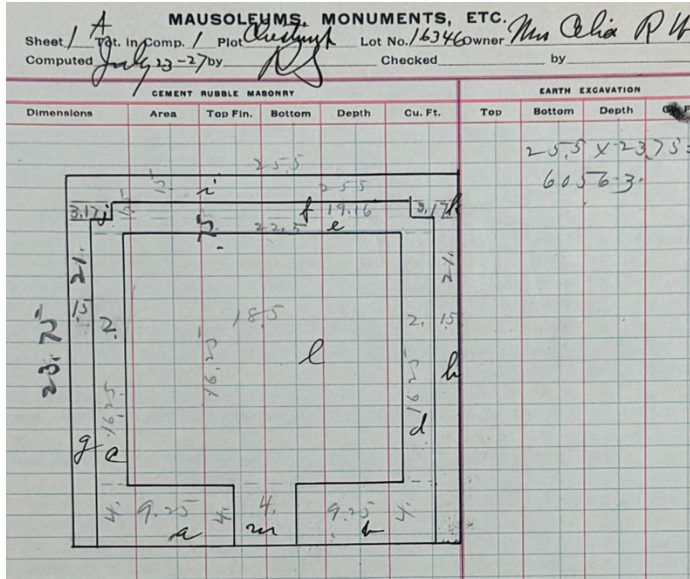 MAUSOLEUMS, MONUMENTS, ETC.
A
Sheet 1 Tot. in Comp. 1 Plot Chestnut Lot No. 16346 Owner Mrs Celia R
Computed July 23-27 by RS Checked by
CEMENT RUBBLE MASONRY EARTH EXCAVATION
Dimensions Area Top Fin. Bottom Depth Cu. Ft. Top Bottom Depth
25.5 X 23.75=
6056 3.
25.5
1/2. i 25.5
3.17 j 1.5 f 19.16 3.17 k
2. 22.5 e
21. 21.
1.5 2. 18.5 2. 1.5
23.75
16.25 l 16.25 h
16.25
g c d
4. 9.25 4. 4. 9.25 4.
a m b